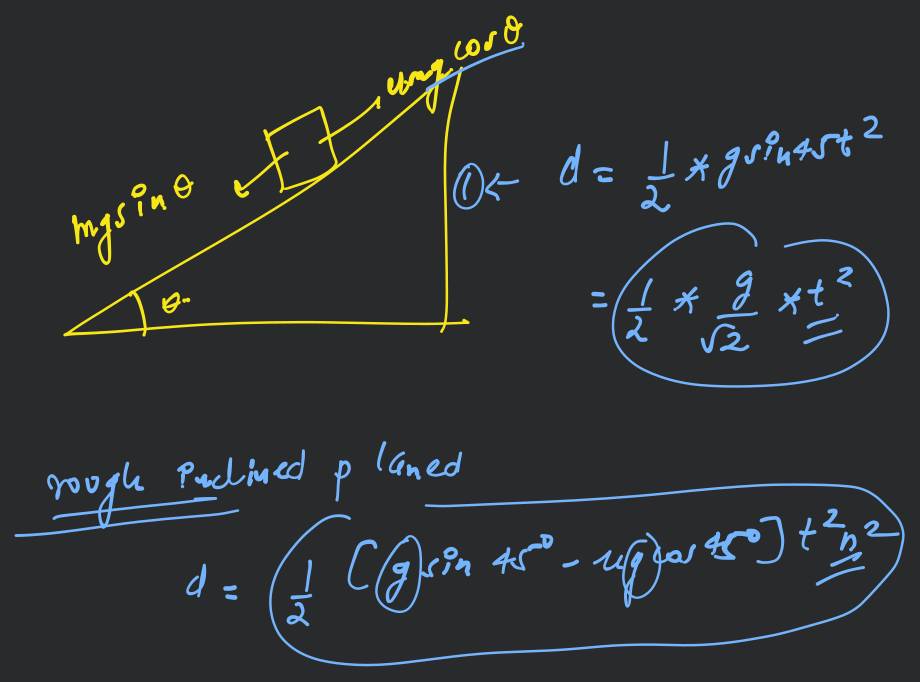 μmg cosθ
mgsinθ
θ
① ← d = 1/2 * gsin45t²
= 1/2 * g/√2 * t²
rough inclined planed
d = 1/2 [gsin 45° - μgcos 45°] t²n²